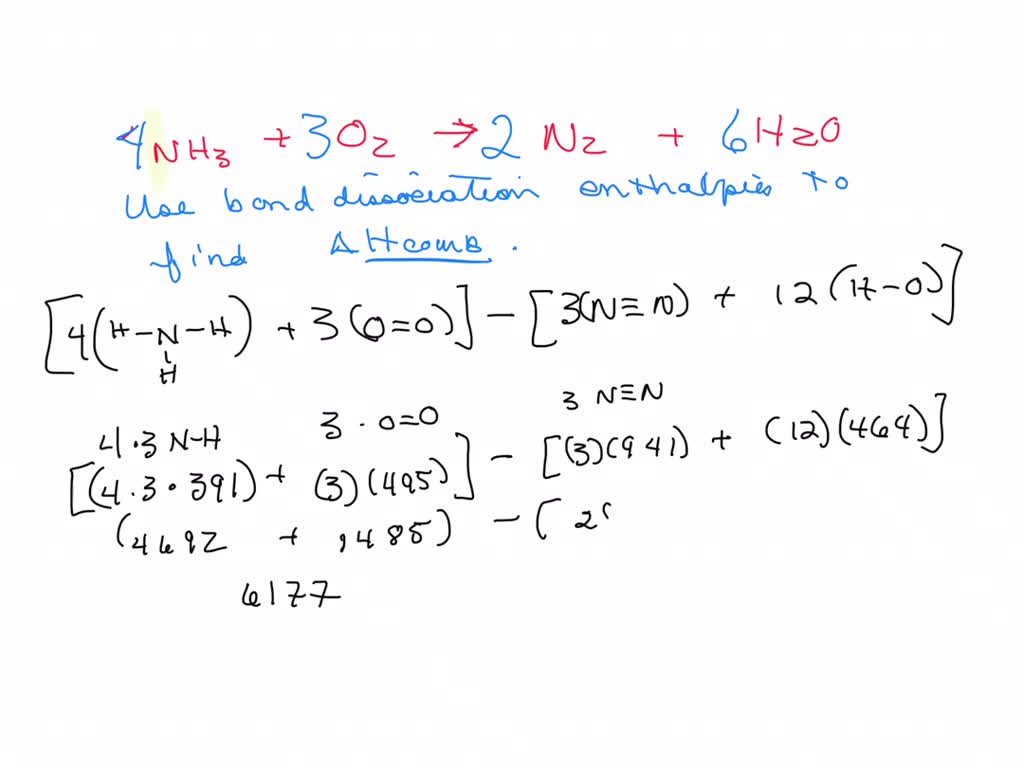 4NH3 + 3O2 → 2 N2 + 6H2O
Use bond dissociation enthalpies to
find ΔHcomb.
[4(H-N-H) + 3(O=O)] - [3(N≡N) + 12(H-O)]
H
4.3 N-H 3 . O=O 3 N≡N
[(4.3.391) + (3)(495)] - [(3)(941) + (12)(464)]
(4692 + 1485) - (
6177